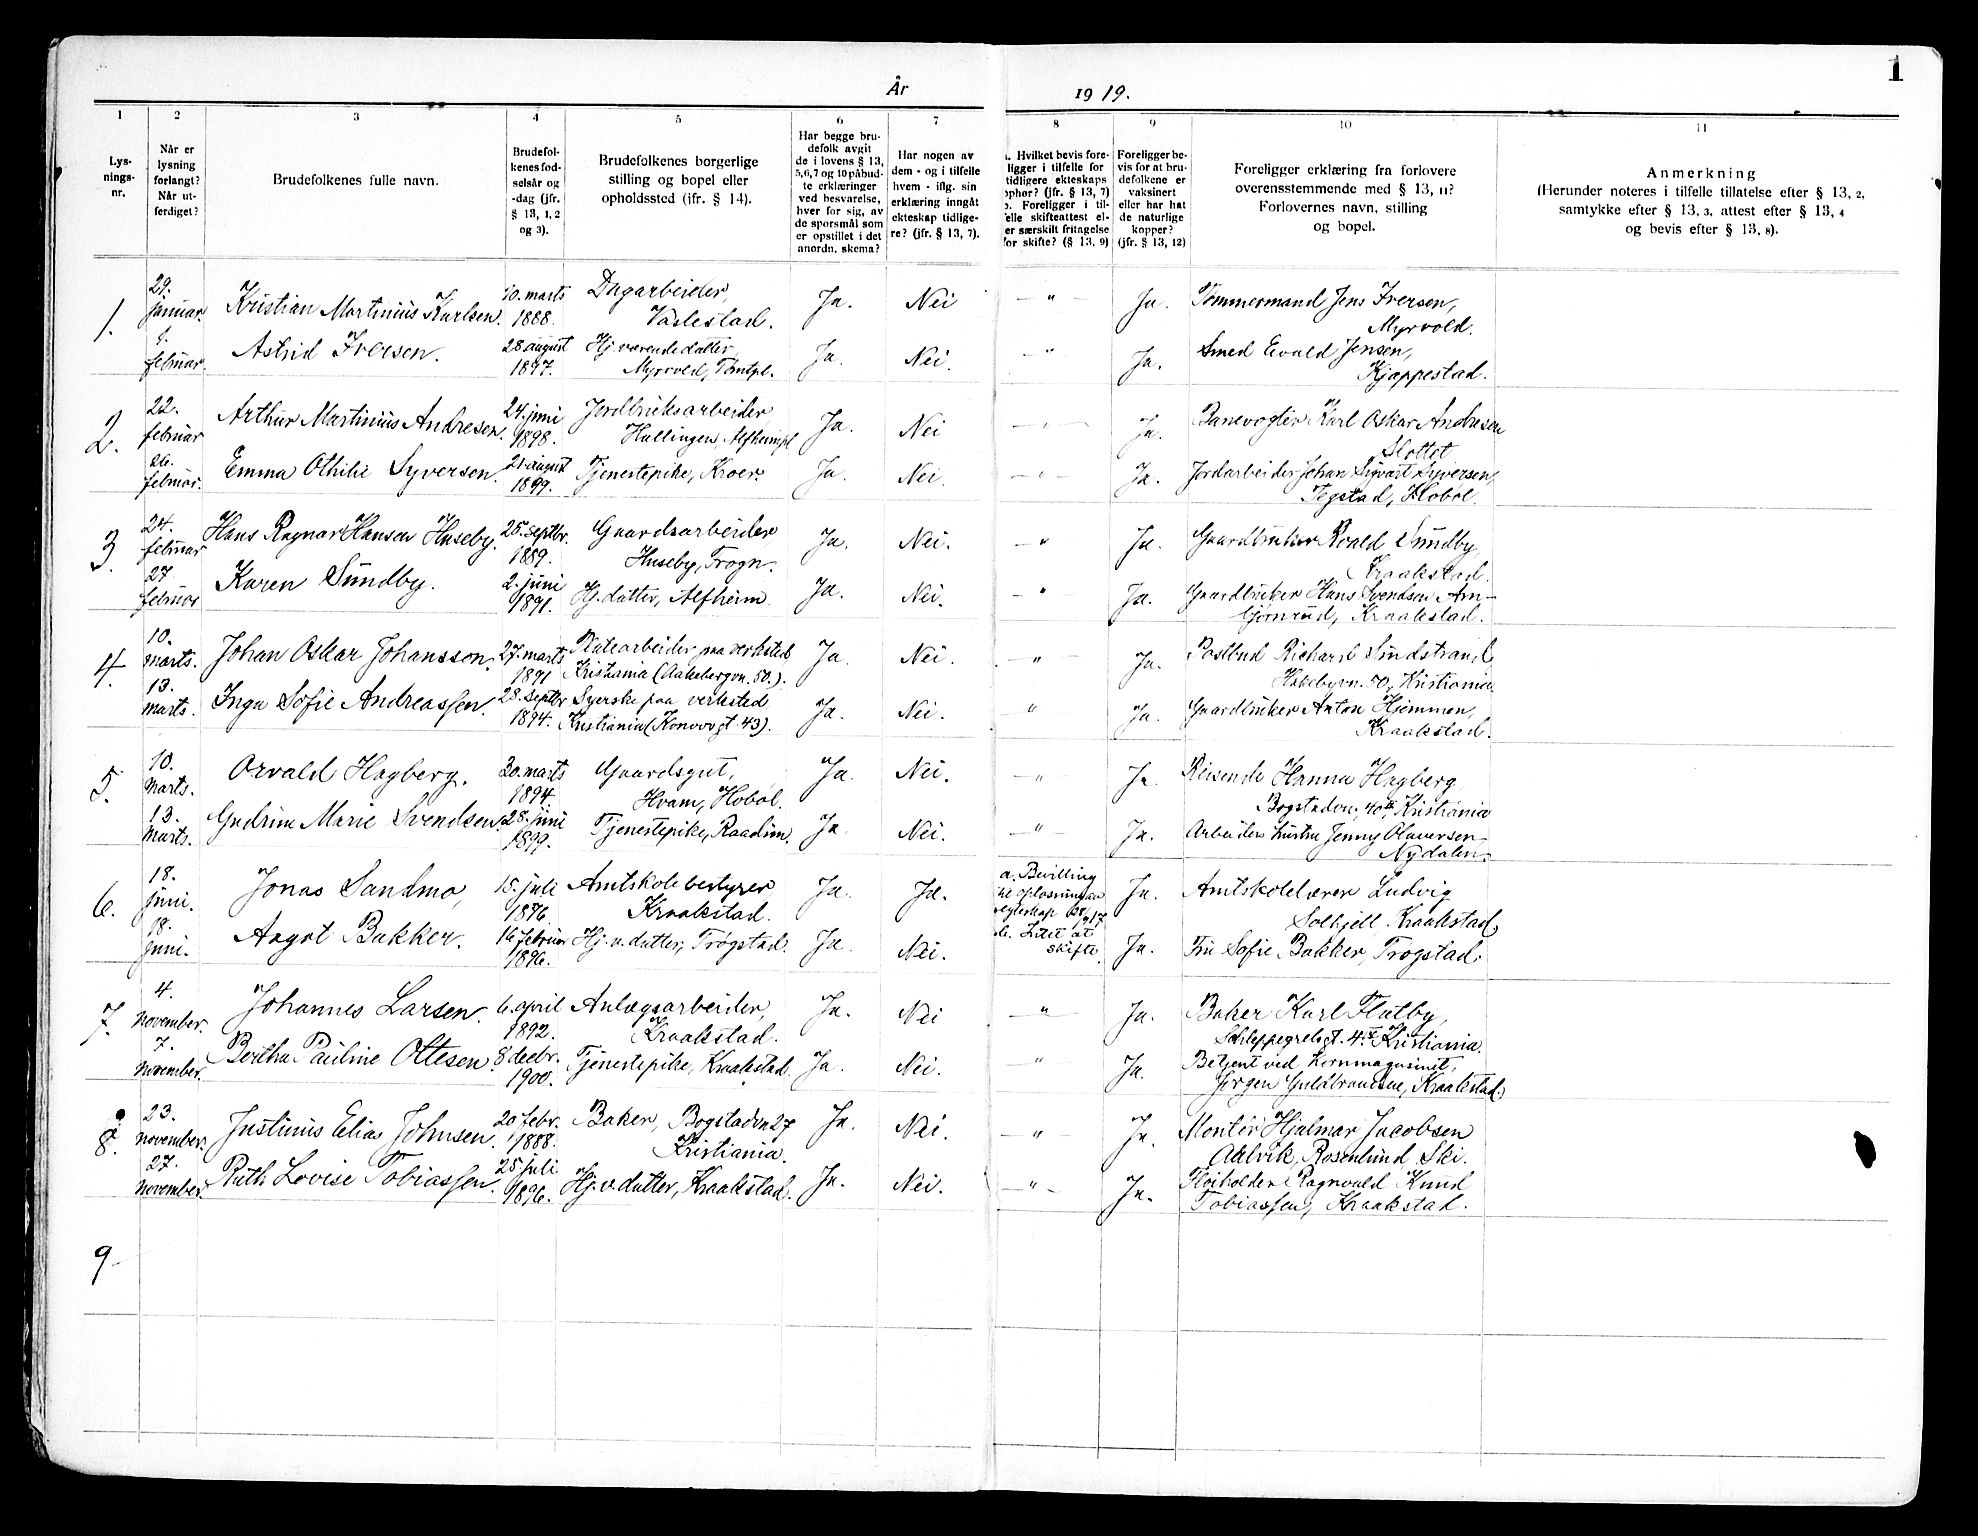 1
År 1919.
1 2 3 4 5 6 7 8 9 10 11
Lys-
nings-
nr.
Når er
lysning
forlangt?
Når ut-
ferdiget?
Brudefolkenes fulle navn.
Brudefol-
kenes fød-
selsår og
-dag (jfr.
§ 13, 1, 2
og 3).
Brudefolkenes borgerlige
stilling og bopel eller
opholdssted (ifr. § 14).
Har begge bru-
defolk avgit
de i lovens § 13,
5,6,7 og 10 påbud-
te erklæringer
ved besvarelse,
hver for sig, av
de sporsmål som
er opstillet i det
anordn. skema?
Har nogen av
dem - og i tilfelle
hvem - iflg. sin
erklæring inngåt
ekteskap tidlige-
re? (jfr. § 13, 7).
. Hvilket bevis fore-
ligger i tilfelle for
tidligere ekteskaps
ophør? (jfr. § 13, 7)
. Foreligger i til-
felle skifteattest el-
er særskilt fritagelse
for skifte? (§ 13, 9)
Foreligger be-
vis for at bru-
defolkene er
vaksinert
eller har hat
de naturlige
kopper?
(jfr. § 13, 12)
Foreligger erklæring fra forlovere
overensstemmende med § 13, 11?
Forlovernes navn, stilling
og bopel.
Anmerkning
(Herunder noteres i tilfelle tillatelse efter § 13, 2,
samtykke efter § 13, 3, attest efter § 13, 4
og bevis efter § 13, 8).
1.
29.
januar.
februar.
Kristian Martinius Karlsen.
10. marts
1888.
Dagarbeider,
Vaslestad.
Ja. Nei — " — Ja.
Tømmermand Jens Iversen,
Myrvold.
Astrid Iversen.
28 august
1897.
Hj. værende datter,
Myrvold, Tomtpl.
Ja. Nei. — " Ja.
Smed Evald Jensen,
Kjappestad.
2.
22.
februar
26.
februar.
Arthur Martinius Andresen.
24. juni
1898.
Jordbruksarbeider
Hullingen Alfheimpl
Ja. Nei — " — Ja.
Banevogter Karl Oskar Andresen
Slottet
Emma Othilie Syversen.
21 august
1899.
Tjenestepike, Kroer.
Ja. Nei. — " — Ja.
Jordarbeider Johan Sigvart Syversen,
Tegstad, Hobøl.
3
24.
februar
27
februar
Hans Ragnar Hansen Huseby.
25. septbr.
1889.
Gaardsarbeider
Huseby, Frogn.
Ja. Nei. — " Ja.
Gaardbruker Roald Sundby,
Kraakstad.
Karen Sundby.
2. juni
1891.
Hj. datter, Alfheim.
Ja. Nei. — " — Ja.
Gaardbruker Hans Svendsen Am-
bjørnrud, Kraakstad.
4.
10.
marts.
13.
marts.
Johan Oskar Johansson.
27. marts
1891
Platearbeider paa verksted
Kristiania (Aakebergvn. 50.).
Ja. Nei. — " Ja.
Postbud Richard Sundstrand
Hakebyvn. 50, Kristiania
Inga Sofie Andreassen.
28. septbr
1894.
Syerske paa verksted
Kristiania (Konowsgt. 43).
Ja. Nei. " — Ja.
Gaardbruker Anton Hjemmen,
Kraakstad.
5.
10.
marts.
13.
marts.
Orvald Hagberg.
30. marts
1894.
Gaardsgut,
Hvam, Hobøl.
Ja. Nei. " Ja.
Reisende Hanna Hagberg
Bogstadvn. 40 III, Kristiania
Gudrun Marie Svendsen.
28. juni
1899.
Tjenestepike, Raadim.
Ja. Nei. — " — Ja.
Arbeiders hustru Jenny Olaversen—
Nydalen.
6.
18.
juni.
18.
juni.
Jonas Sandmo,
15. juli
1876.
Amtskolebestyrer
Kraakstad.
Ja. Ja.
a. Bevilling
til opløsning av
egteskap 1917
b. Intet at
skifte.
Ja.
Amtskolelærer Ludvig
Solhjell. Kraakstad,
Aagot Bakker.
16 februar
1896.
Hj. v. datter, Trøgstad.
Ja. Nei. Ja.
Fru Sofie Bakker, Trøgstad.
7.
4.
november.
7.
november.
Johannes Larsen.
6. april
1892.
Anlægsarbeider,
Kraakstad.
Ja. Nei — " — Ja.
Baker Karl Flatby,
Schleppegrelsgt. 4. II Kristiania.
Bertha Pauline Ottesen
8 decbr.
1900.
Tjenestepike, Kraakstad.
Ja. Nei. " Ja.
Betjent ved kornmagasinet,
Jørgen Guldbrandsen, Kraakstad.
8.
23.
november.
27.
november.
Justinus Elias Johnsen.
20 febr.
1888.
Baker, Bogstadvn 27
Kristiania.
Ja. Nei. — " Ja.
Montør Hjalmar Jacobsen
Aalvik, Rosenlund Ski.
Ruth Lovise Tobiassen.
25 juli
1896.
Hj. v. datter, Kraakstad.
Ja. Nei. — " — Ja.
Ragnvald Knud
Tobiassen, Kraakstad.
9